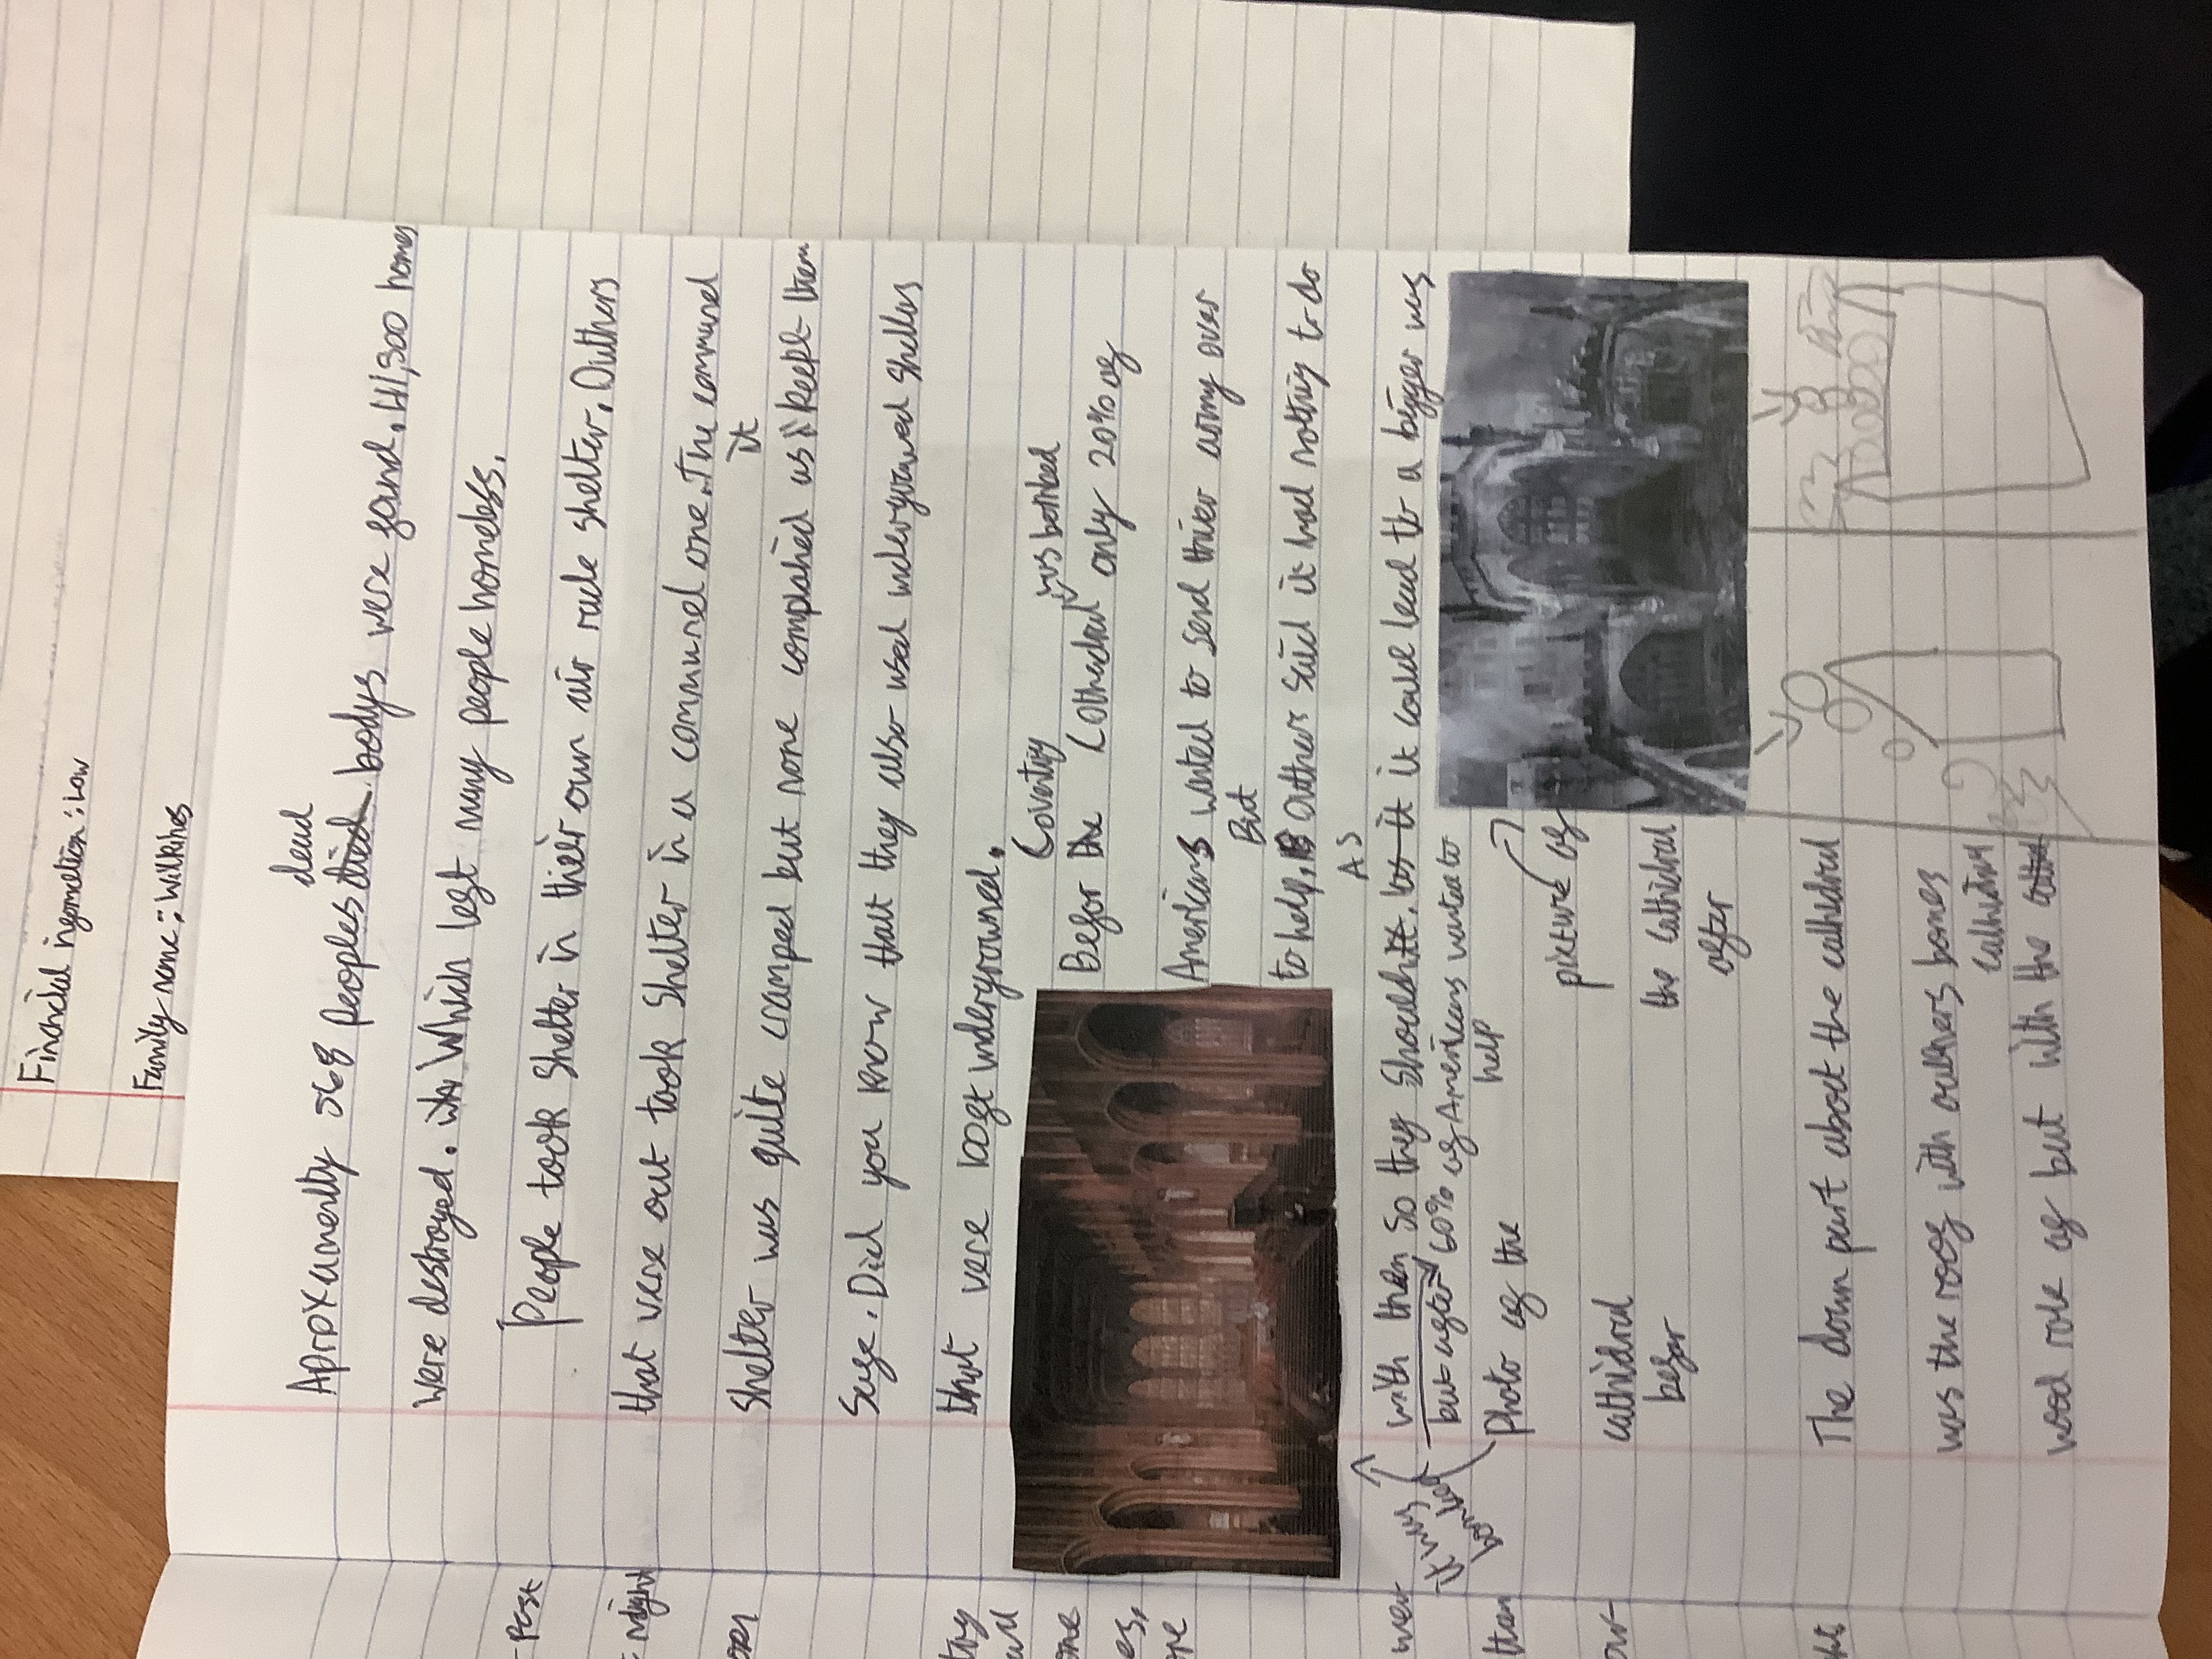 Financial infometion: Low
Family name: Wilkines
dead
Approxamently 568 peoples died bodys were found. 41,300 homes
were destroyed. Which left many people homeless.
People took shelter in thier own air rade shelter. Outhers
that were out took shelter in a communel one. The communel
it
shelter was quite cramped but none complained as keept them
safe. Did you know that they also used undergrowned shelters
that were 100ft undergrowned.
Coventry was bombed
Befor the Cathedral only 20% of
Americans wanted to send thier army over
But
to help. Outhers said it had nothing to do
As
with them so they shouldnt. it coule lead to a bigger war
but after it was bombed 60% of Americans wanted to
help
Photo of the
cathidral
befor
picture of
the cathidral
after
The down part about the cathedral
was the roof with outhers bomes
cathidral
wood role of but with the
Past
night
were
then